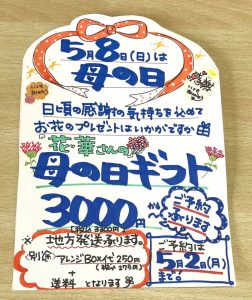 5月8日(日)は
母の日
日頃の感謝の気持ちを込めて
お花のプレゼントはいかがですか
花華さんの
母の日ギフト
3000円から
(税込3300円)
ご予約
承ります
地方発送承ります。
別途
アレンジBOX代 250円
(税込275円)
+
送料 となります
ご予約は
5月2日(月)
まで。